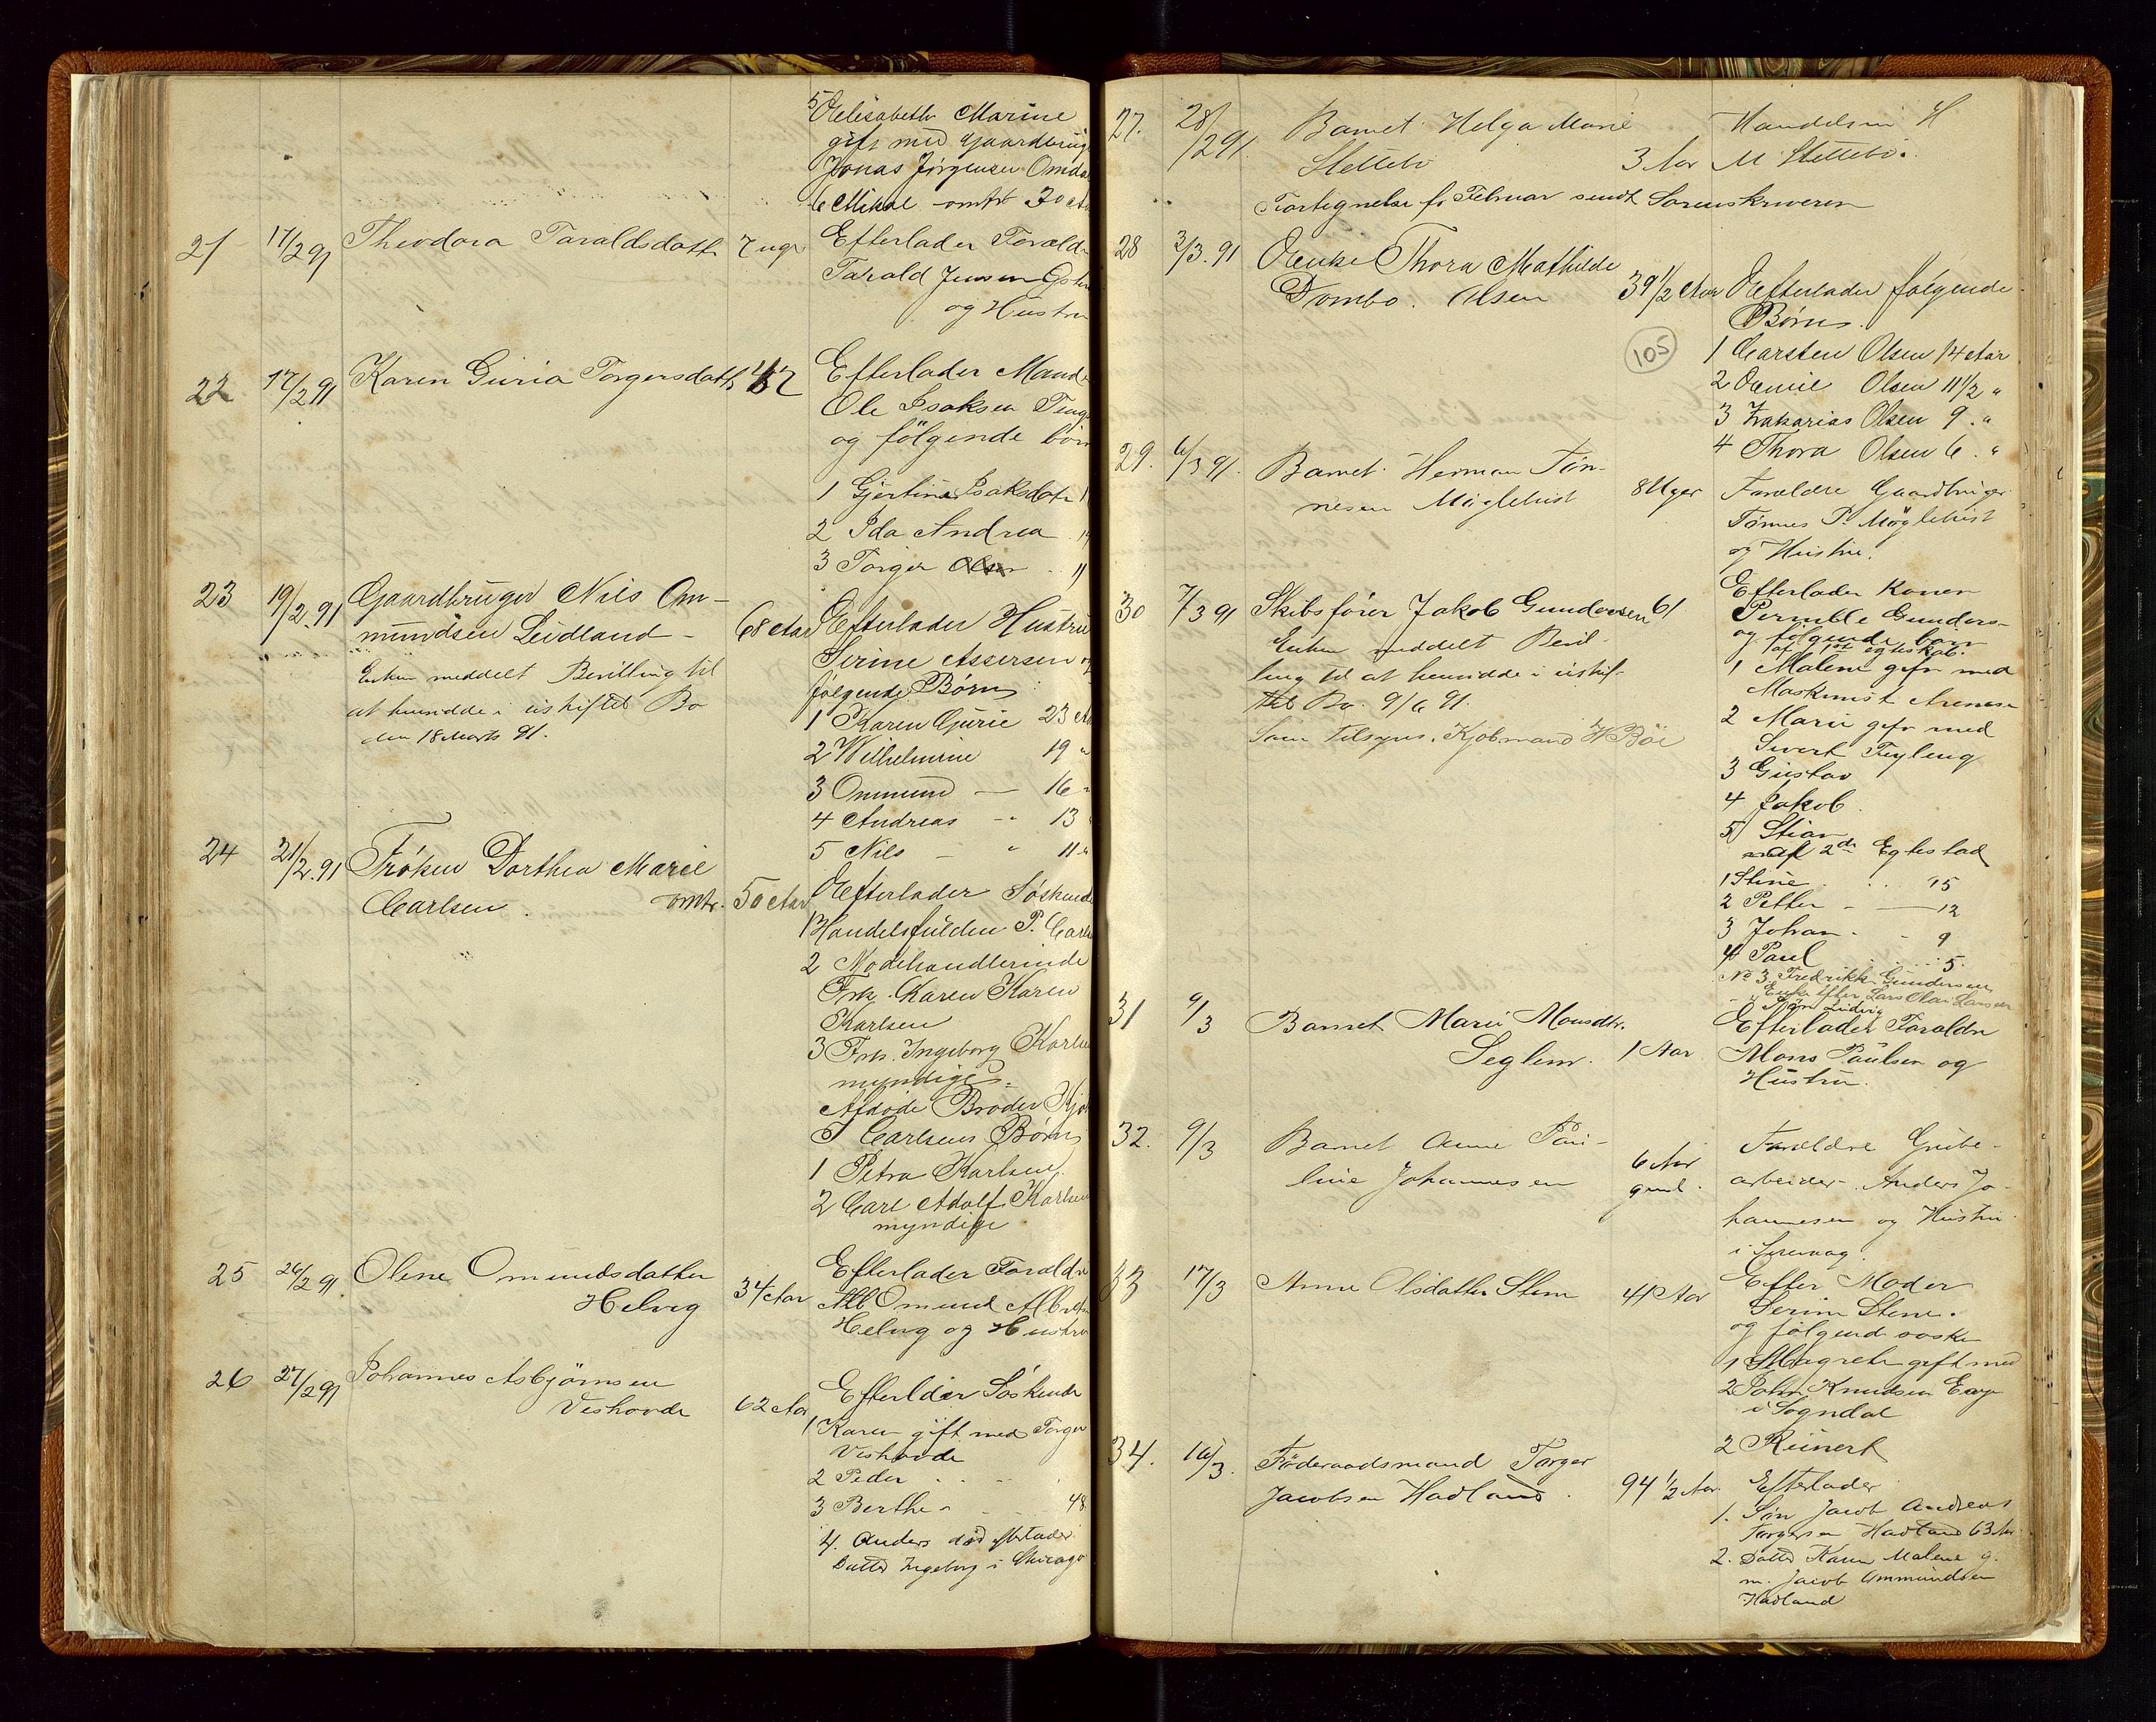 5 Elisabeth Marine
gift med Gaardbrug
Jonas Jörgensen Omda
6 Mikal omtr 30 A
21 17/2 91 Theodora Taraldsdatter 7 uger Efterlader Foræld
Tarald Jensen
og Hustru
22 17/2 91 Karen Guria Torgersdatter Efterlader Mand
Ole Isaksen
og fölgende börn
1 Gjertine Isaksdatr 1
2 Ida Andrea
3 Torger Olsen 11
23 19/2.91 Gaardbruger Nils Om-
mundsen Leidland - 68 Aar Efterlader Hustru
Serine Assersen og
følgende Børn:
Enken meddelt Bevilling til
at hensidde i uskiftet Bo
den 18 Marts 91.
1 Karen Gurie 23 A
2 Wilhelmine 19 "
3 Ommund — 16 "
4 Andreas - " 13
5 Nils — " 11 "
24 21/2.91 Frøken Dorthea Marie
Carlsen. omtr. 50 Aar Efterlader Søskende
1 Handelsfuldm P. Carl
2 Modehandlerinde
Frk. Karen Karen
Karlsen
3 Frk. Ingeborg Karlse
myndige.
Afdöde Broder Kjø
Carlsens Børn
1 Petra Karlsen.
2 Carl Adolf Karlsen
myndige
25 26/2 91 Olene Omundsdatter
Helvig 34 Aar Efterlader Foraldre
Omund Albret
Helvig og Hustru
26 27/2 91 Johannes Asbjörnsen
Veshovde 62 Aar Efterlader Söskende
1 Karen gift med Torger
Veshovde
2 Peder
3 Berthe 48
4. Anders död efterlader
Datter Ingeborg i Chicago
27. 28/2 91. Barnet Helga Marie
Slettebö 3 Aar Handelsm H
M Slettebö.
Fortegnelse for Februar sendt Sorenskriveren
28 2/3. 91 Enke Thora Mathilde
Dombo. Olsen 39 1/2 Aar Efterlader følgende
Børn.
105
1 Carsten Olsen 14 Aar
2 Emil Olsen 11 1/2 "
3 Zakarias Olsen 9. "
4 Thora Olsen 6. "
29. 6/3 91. Barnet Herman Tön-
nesen Møglebust 8 Uger Forældre Gaardbruger
Tönnes P. Møglebust
og Hustru.
30 7/3 91 Skibsfører Jakob Gundersen 61 Efterlader Konen
Pernille Gunders-
og fölgende barn
af 1st egteskab.
Enken meddelt Bevil-
ling til at hensidde i uskif-
tet Bo. 9/6 91.
Som Tilsyns. Kjöbmand H Böe
1 Malene gift med
Maskinist Arenesen
2 Marie gift med
Sivert Feyling
3 Gustav
4 Jakob.
5 Stian
af 2de Egteskab
1 Stine 15
2 Petter — 12
3 Johan - 9
4 Paul 5.
No 3 Fredrikke Gundersen
Enke efter Lars Olai Larsen
31 9/3 Barnet Marie Monsdtr.
Seglem. 1 Aar Efterlader Foraldre
Mons Paulsen og
Hustru.
32. 9/3 Barnet Anne Pau-
line Johannesen 6 Aar
gml. Forældre Grube-
arbeider Anders Jo-
hannesen og Hustru
i Sirevaag.
33 17/3 Anne Olsdatter Stene 41 Aar Efter Moder
Serine Stene.
og fölgende söske
1 Magrete gift med
2 John Knudsen
i Sogndal
2 Reinert
34. 16/3. Föderaadsmand Torger
Jacobsen Hadland. 94 1/2 Aar Efterlader
1. Søn Jacob Andreas
Torgersen Hadland 63 Aar
2. Datter Karen Malene g.
m. Jacob Ommundsen
Hadland